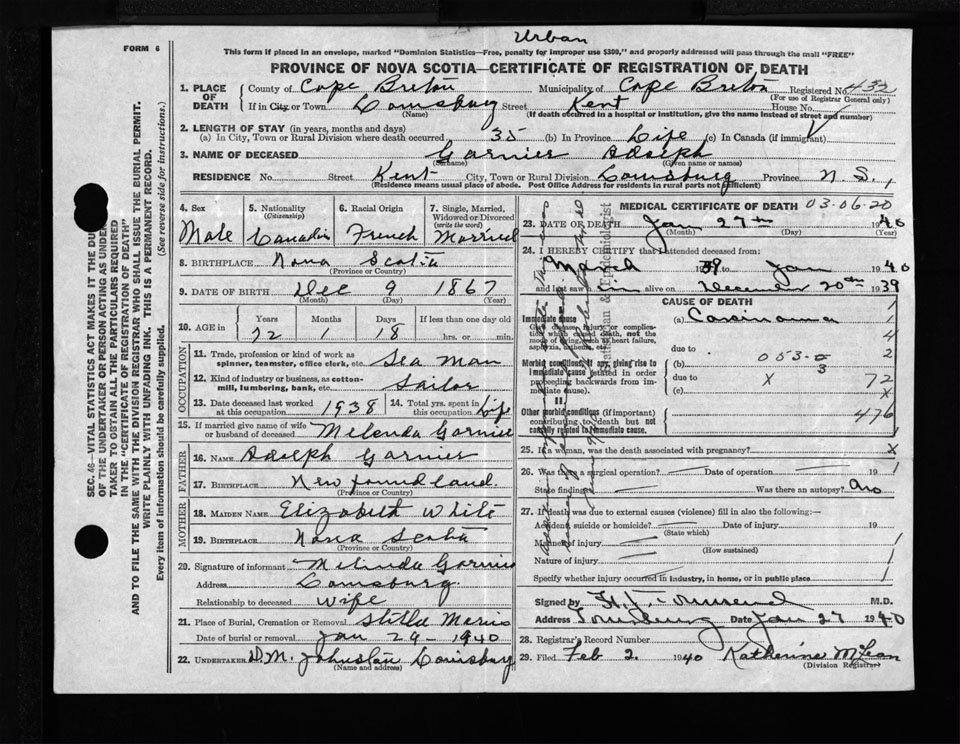 Urban
FORM 6
This form if placed in an envelope, marked "Dominion Statistics—Free, penalty for improper use $300," and properly addressed will pass through the mail "FREE"
PROVINCE OF NOVA SCOTIA—CERTIFICATE OF REGISTRATION OF DEATH
SEC. 46—VITAL STATISTICS ACT MAKES IT THE DU
OF THE UNDERTAKER OR PERSON ACTING AS UNDER
TAKER TO OBTAIN ALL THE PARTICULARS REQUIRED
IN THE "CERTIFICATE OF REGISTRATION OF DEATH"
AND TO FILE THE SAME WITH THE DIVISION REGISTRAR WHO SHALL ISSUE THE BURIAL PERMIT.
WRITE PLAINLY WITH UNFADING INK. THIS IS A PERMANENT RECORD.
Every item of information should be carefully supplied. (See reverse side for instructions.)
1. PLACE OF DEATH County of Cape Breton Municipality of Cape Breton Registered No. 132
(For use of Registrar General only)
If in City or Town Louisburg Street Kent House No.
(Name) (If death occurred in a hospital or institution, give the name instead of street and number)
2. LENGTH OF STAY (in years, months and days)
(a) In City, Town or Rural Division where death occurred 35 (b) In Province Life (c) In Canada (if immigrant)
3. NAME OF DECEASED Garnier Adolph
(Surname) (Given name or names)
RESIDENCE No. Street Kent City, Town or Rural Division Louisburg Province N.S.
(Residence means usual place of abode. Post Office Address for residents in rural parts not sufficient)
4. Sex 5. Nationality (Citizenship) 6. Racial Origin 7. Single, Married, Widowed or Divorced (write the word)
Male Canadian French Married
8. BIRTHPLACE Nova Scotia
(Province or Country)
9. DATE OF BIRTH Dec 9 1867
(Month) (Day) (Year)
10. AGE in Years Months Days If less than one day old
72 1 18 hrs. or min.
OCCUPATION
11. Trade, profession or kind of work as spinner, teamster, office clerk, etc. Sea Man
12. Kind of industry or business, as cotton-mill, lumbering, bank, etc. Sailor
13. Date deceased last worked at this occupation 1938 14. Total yrs. spent in this occupation Life
15. If married give name of wife or husband of deceased Melenda Garnier
FATHER
16. NAME Adolph Garnier
17. BIRTHPLACE Newfoundland
(Province or Country)
MOTHER
18. MAIDEN NAME Elizabeth White
19. BIRTHPLACE Nova Scotia
(Province or Country)
20. Signature of informant Melinda Garnier
Address Louisburg.
Relationship to deceased wife
21. Place of Burial, Cremation or Removal Stilla Maris
Date of burial or removal Jan 29 - 1940
22. UNDERTAKER D.M. Johnston Louisburg
(Name and address)
MEDICAL CERTIFICATE OF DEATH 03-06-20
23. DATE OF DEATH Jan 27th 1940
(Month) (Day) (Year)
24. I HEREBY CERTIFY that I attended deceased from:
March 1939 to Jan 1940
and last saw him alive on December 20th 1939
CAUSE OF DEATH
Immediate cause (a) Carcinoma
Give disease, injury or complication which caused death, not the mode of dying, such as heart failure, asphyxia, asthenia, etc.
due to
(b)
Morbid conditions, if any, giving rise to immediate cause (stated in order proceeding backwards from immediate cause).
due to
(c)
053-0
3
X
1
4
2
72
x
476
II
Other morbid conditions (if important) contributing to death but not causally related to immediate cause.
25. If a woman, was the death associated with pregnancy? X
26. Was there a surgical operation? Date of operation 19
State findings Was there an autopsy? no
27. If death was due to external causes (violence) fill in also the following:—
Accident, suicide or homicide? Date of injury 19
(State which)
Manner of injury
(How sustained)
Nature of injury
Specify whether injury occurred in industry, in home, or in public place
Signed by Townsend M.D.
Address Louisburg Date Jan 27 1940
28. Registrar's Record Number
29. Filed Feb 2. 1940 Katherine McLean
(Division Registrar)
& Epidemiologist